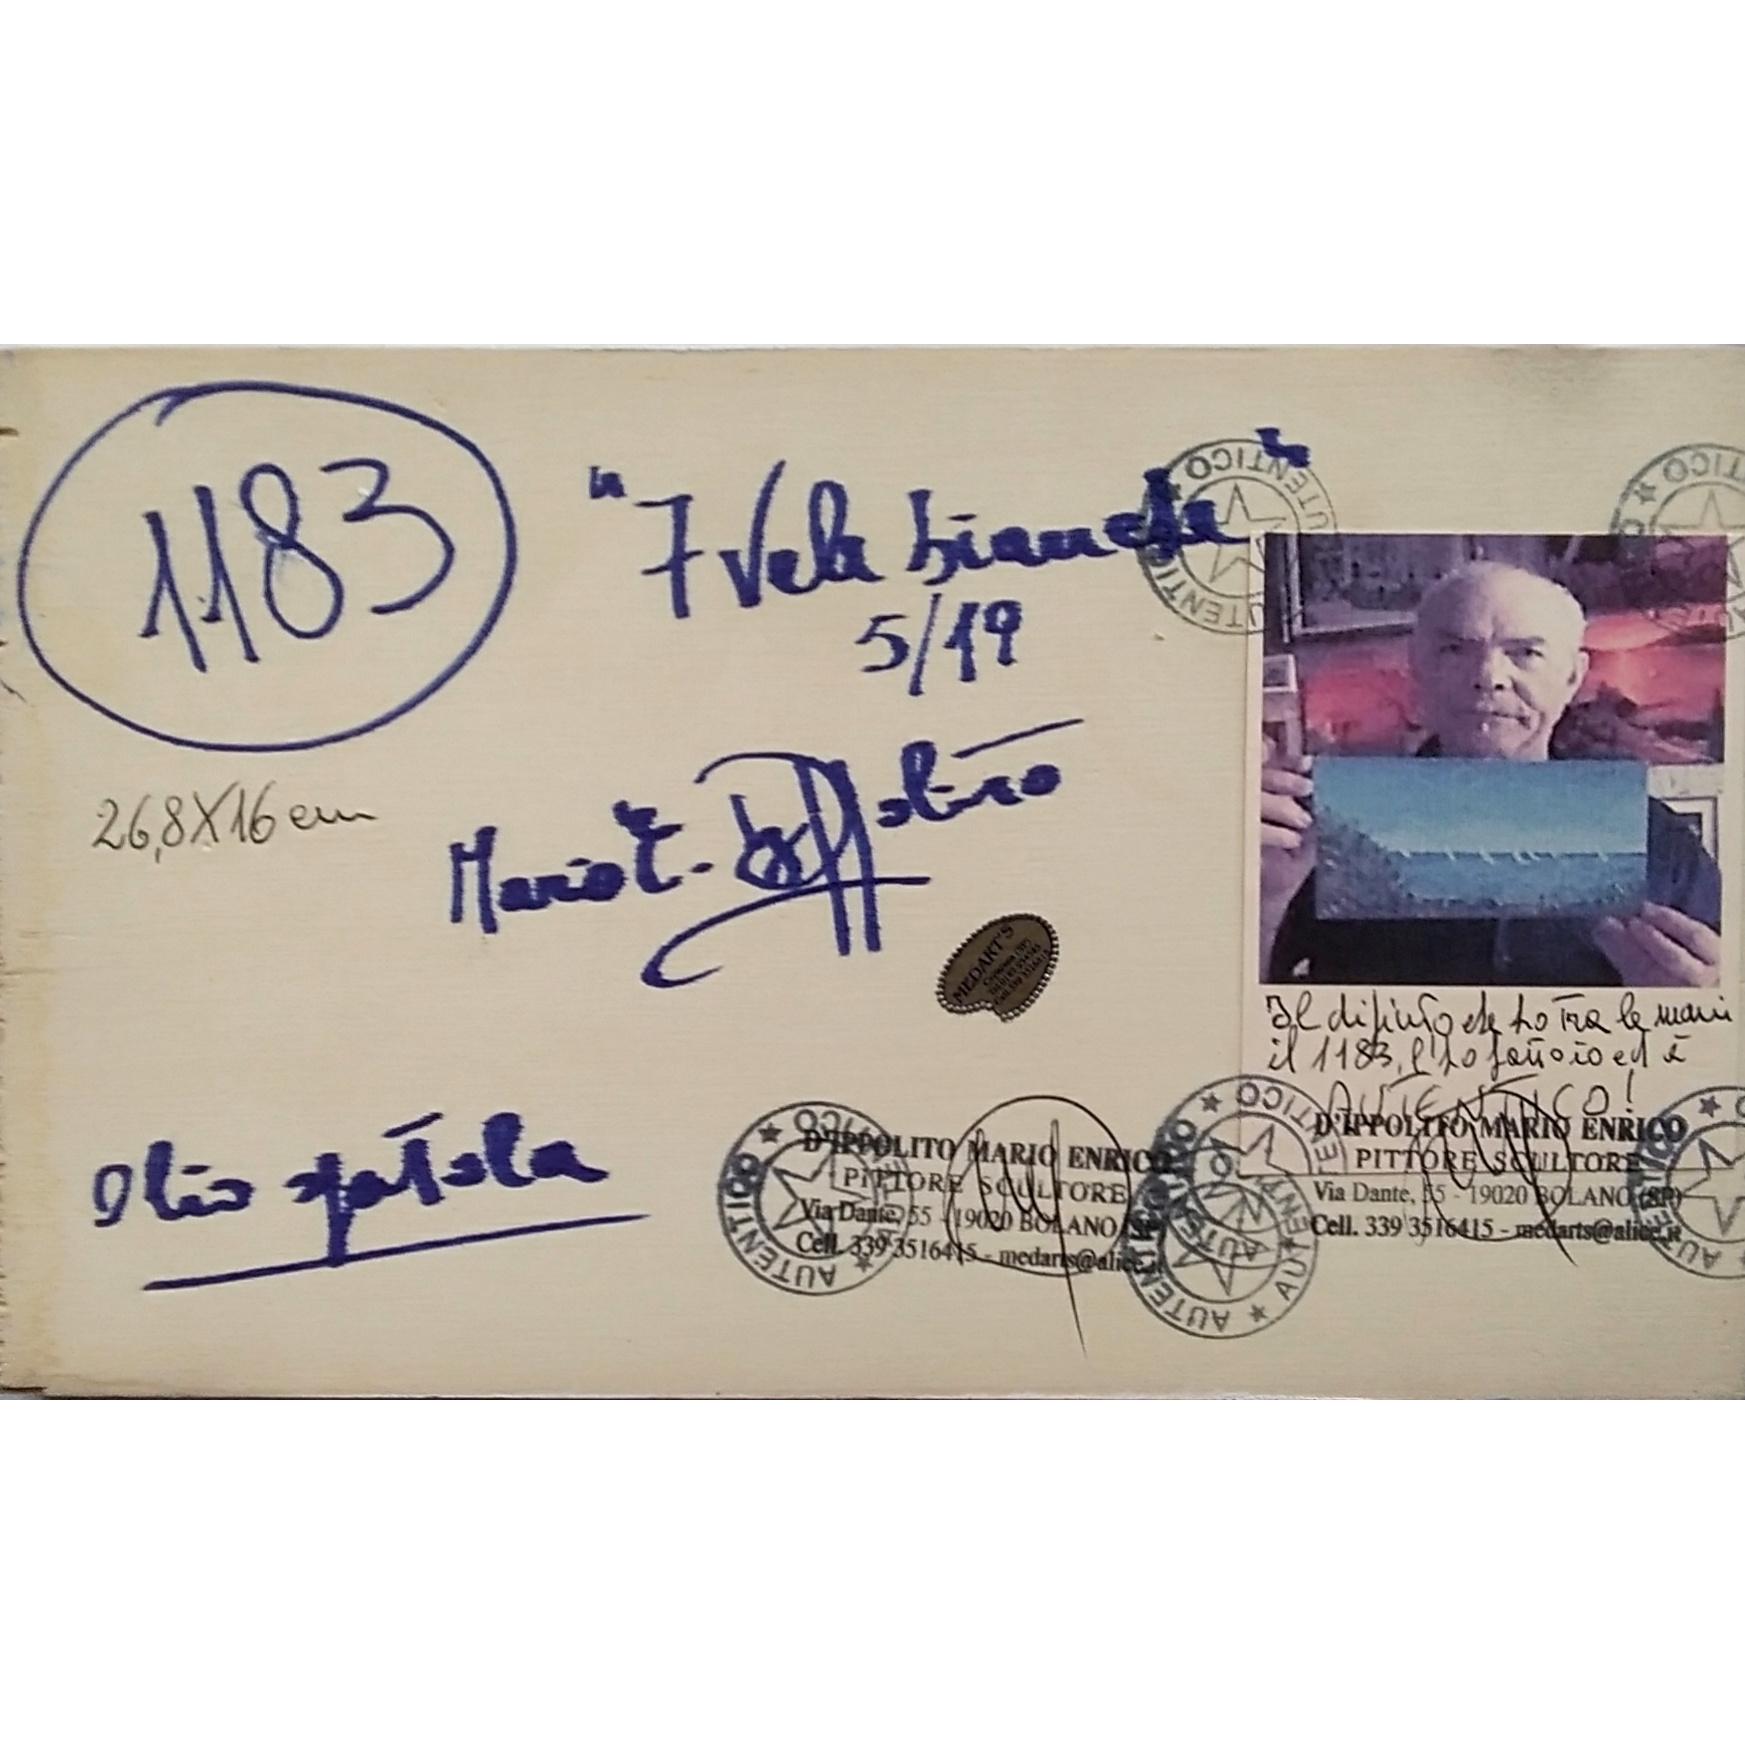 1183
"7 Vele bianche"
5/19
26,8X16 cm
Mario E. D'Ippolito
MEDART'S
Olio spatola
Il dipinto che ho tra le mani
il 1183, l'ho fatto io ed è
AUTENTICO!
D'IPPOLITO MARIO ENRICO
PITTORE SCULTORE
Via Dante, 55 - 19020 BOLANO (SP)
Cell. 339 3516415 - medarts@alice.it
D'IPPOLITO MARIO ENRICO
PITTORE SCULTORE
Via Dante, 55 - 19020 BOLANO (SP)
Cell. 339 3516415 - medarts@alice.it
AUTENTICO ★ AUTENTICO
AUTENTICO ★ AUTENTICO
AUTENTICO ★ AUTENTICO
AUTENTICO ★ AUTENTICO